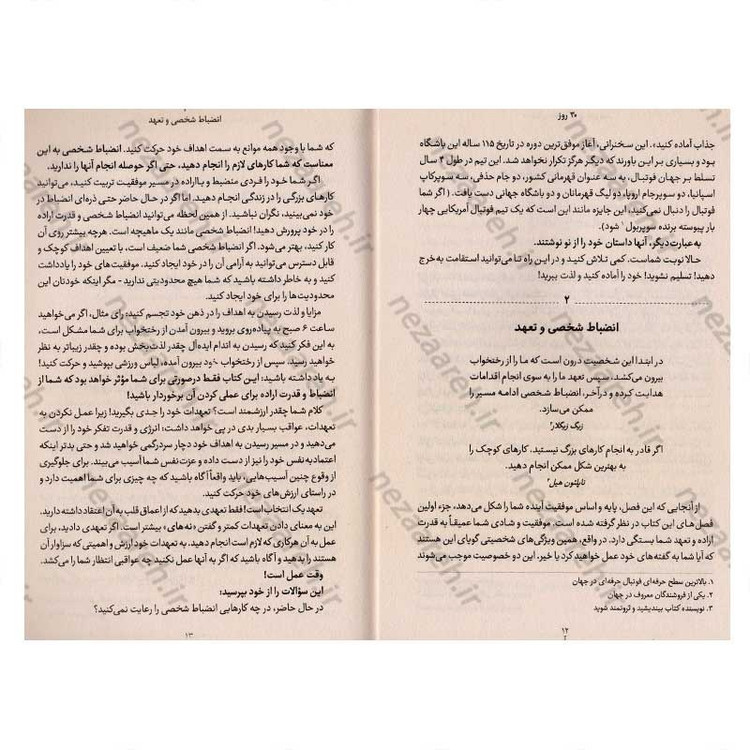 ۳۰ روز
جذاب آماده کنید». این سخنرانی، آغاز موفق‌ترین دوره در تاریخ ۱۱۵ ساله این باشگاه
بود و بسیاری بر این باورند که دیگر هرگز تکرار نخواهد شد. این تیم در طول ۴ سال
تسلط بر جهان فوتبال، به سه عنوان قهرمانی کشور، دو جام حذفی، سه سوپرکاپ
اسپانیا، دو سوپرجام اروپا، دو لیگ قهرمانان و دو باشگاه جهانی دست یافت. ( اگر شما
فوتبال را دنبال نمی‌کنید، این جایزه مانند این است که یک تیم فوتبال آمریکایی چهار
بار پیوسته برنده سوپربول ۱ شود).
به عبارت دیگر، آنها داستان خود را از نو نوشتند.
حالا نوبت شماست. کمی تلاش کنید و در این راه تا می‌توانید استقامت به خرج
دهید! تسلیم نشوید! خود را آماده کنید و لذت ببرید!
۲
انضباط شخصی و تعهد
در ابتدا این شخصیت درون است که ما را از رختخواب
بیرون می‌کشد، سپس تعهد ما را به سوی انجام اقدامات
هدایت کرده و در آخر، انضباط شخصی ادامه مسیر را
ممکن می‌سازد.
زیگ زیگلار۲
اگر قادر به انجام کارهای بزرگ نیستید. کارهای کوچک را
به بهترین شکل ممکن انجام دهید.
ناپلئون هیل۳
از آنجایی که این فصل، پایه و اساس موفقیت آینده شما را شکل می‌دهد، جزء اولین
فصل‌های این کتاب در نظر گرفته شده است. موفقیت و شادی شما عمیقاً به قدرت
اراده و تعهد شما بستگی دارد. در واقع، همین ویژگی‌های شخصیتی گویای این هستند
که آیا شما به گفته‌های خود عمل خواهید کرد یا خیر. این دو خصوصیت موجب می‌شوند
۱. بالاترین سطح حرفه‌ای فوتبال حرفه‌ای در جهان
۲. یکی از فروشندگان معروف در جهان
۳. نویسنده کتاب بیندیشید و ثروتمند شوید
۱۲
انضباط شخصی و تعهد
که شما با وجود همه موانع به سمت اهداف خود حرکت کنید. انضباط شخصی به این
معناست که شما کارهای لازم را انجام دهید، حتی اگر حوصله انجام آنها را ندارید.
اگر شما خود را فردی منضبط و بااراده در مسیر موفقیت تربیت کنید، می‌توانید
کارهای بزرگی را در زندگی انجام دهید. اما اگر در حال حاضر حتی ذره‌ای انضباط در
خود نمی‌بینید، نگران نباشید. از همین لحظه می‌توانید انضباط شخصی و قدرت اراده
را در خود پرورش دهید! انضباط شخصی مانند یک ماهیچه است. هرچه بیشتر روی آن
کار کنید، بهتر می‌شود. اگر انضباط شخصی شما ضعیف است، با تعیین اهداف کوچک و
قابل دسترس می‌توانید به آرامی آن را در خود ایجاد کنید. موفقیت‌های خود را یادداشت
کنید و به خاطر داشته باشید که شما هیچ محدودیتی ندارید - مگر اینکه خودتان این
محدودیت‌ها را برای خود ایجاد کنید.
مزایا و لذت رسیدن به اهداف را در ذهن خود تجسم کنید: برای مثال، اگر می‌خواهید
ساعت ۶ صبح به پیاده‌روی بروید و بیرون آمدن از رختخواب برای شما مشکل است،
به این فکر کنید که رسیدن به اندام ایده‌آل چقدر لذت‌بخش بوده و چقدر زیباتر به نظر
خواهید رسید. سپس از رختخواب خود بیرون آمده، لباس ورزشی بپوشید و حرکت کنید!
به یاد داشته باشید: این کتاب فقط درصورتی برای شما مؤثر خواهد بود که شما از
انضباط و قدرت اراده برای عملی کردن آن برخوردار باشید!
کلام شما چقدر ارزشمند است؟ تعهدات خود را جدی بگیرید! زیرا عمل نکردن به
تعهدات، عواقب بسیار بدی در پی خواهد داشت: انرژی و قدرت تفکر خود را از دست
می‌دهید و در مسیر رسیدن به اهداف خود دچار سردرگمی خواهید شد و حتی بدتر اینکه
اعتماد به نفس خود را نیز از دست داده و عزت نفس شما آسیب می‌بیند. برای جلوگیری
از وقوع چنین آسیب‌هایی، باید واقعاً آگاه باشید که چه چیزی برای شما اهمیت دارد و
در راستای ارزش‌های خود حرکت کنید.
تعهد یک انتخاب است! فقط تعهدی بدهید که از اعماق قلب به آن اعتقاد داشته دارید.
این به معنای دادن تعهدات کمتر و گفتن «نه‌های» بیشتر است. اگر تعهدی دادید، برای
عمل به آن هرکاری که لازم است انجام دهید. به تعهدات خود ارزش و اهمیتی که سزاوار آن
هستند را بدهید و آگاه باشید که اگر به آنها عمل نکنید چه عواقبی انتظار شما را می‌کشد.
وقت عمل است!
این سؤالات را از خود بپرسید:
در حال حاضر، در چه کارهایی انضباط شخصی را رعایت نمی‌کنید؟
۱۳
nezaareh.ir